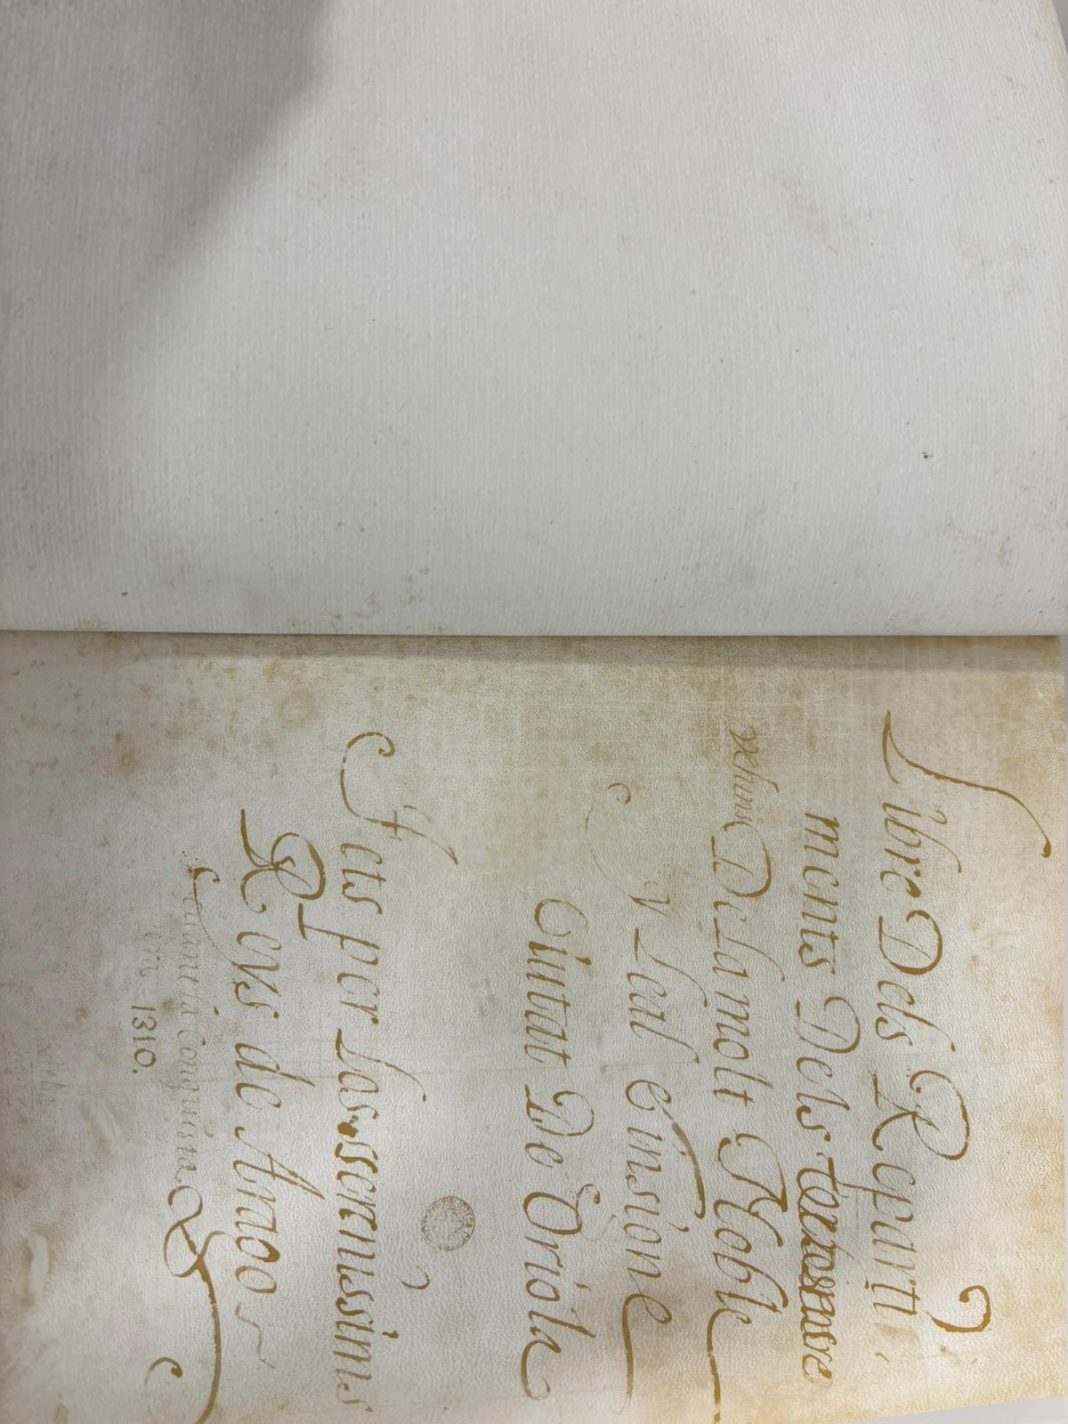 Libre Dels Reparti,
ments Dels
vehins De La molt Noble
y Leal e insigne
Ciutat De Oriola
Fets per los serenissims
Reys de Arago
era 1310.